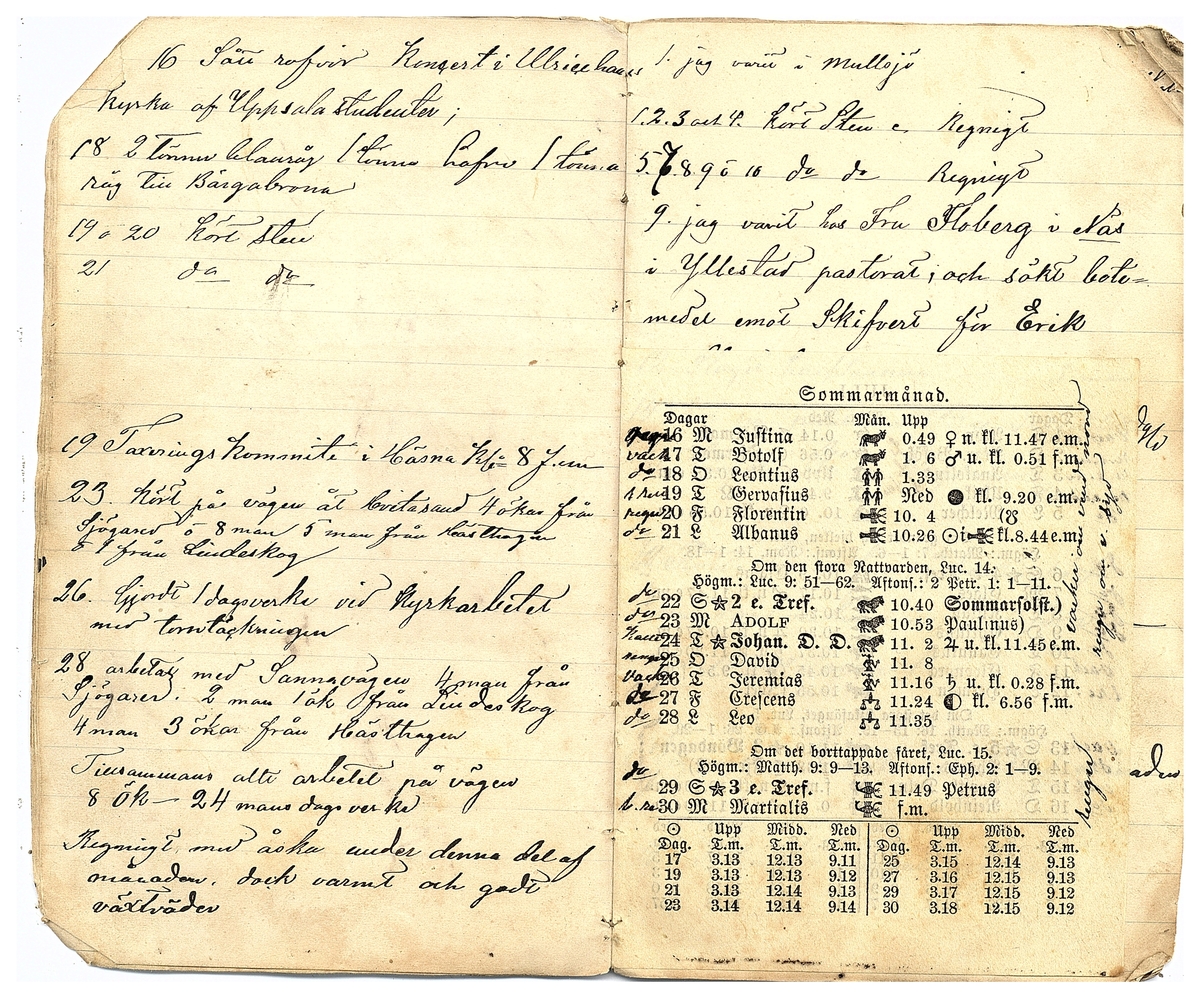 16 Sån rofvor Konsert i Ulricehams
kyrka af Uppsala studenter;
18 2 tönnor blanråg 1 tönna hafre 1 tönna
råg till Bärgabrona
19 o 20 kört sten
21 do do
19 Taxerings kommité i Håsna Kl 8 f.m
23. kört på vägen åt Hvitasand 4 ökar från
Sjögared o 8 man 5 man från Hästhagen
o 1 från Lindeskog
26. Gjordt 1 dagsverke vid kyrkarbetet
med torntäckningen
28 arbetat med Sannavägen 4 man från
Sjögared. 2 man 1 ök från Lindeskog
4 man 3 ökar från Hästhagen
Tillsammans allt arbetet på vägen
8 ök — 24 mans dagsverke
Regnigt med åska under denna del af
månaden. dock varmt och godt
växtväder
1. jag varit i Mullsjö
1. 2. 3 och 4. kört Sten Regnigt
5. 7. 8. 9 o 10 do do Regnigt
9. jag varit hos Fru Floberg i Näs
i Yllestad pastorat; och sökt bote=
medel emot Skefvert för Erik
Sommarmånad.
Dagar Mån. Upp
16 M Justina 0.49 ♀ n. kl. 11.47 e.m.
vack 17 T Botolf 1. 6 ♂ u. kl. 0.51 f.m.
do 18 O Leontius 1.33
19 T Gervasius Ned ● kl. 9.20 e.m.
regn 20 F Florentin 10. 4 (☋
do 21 L Albanus 10.26 ☉ i kl. 8.44 e.m.
Om den stora Nattvarden, Luc. 14.
Högm.: Luc. 9: 51—62. Aftons.: 2 Petr. 1: 1—11.
do 22 S ☆ 2 e. Tref. 10.40 Sommarsolst.)
do 23 M ADOLF 10.53 Paulinus)
24 T ☆ Johan. D. D. 11. 2 ♃ u. kl. 11.45 e.m.
25 O David 11. 8
vack 26 T Jeremias 11.16 ♄ u. kl. 0.28 f.m.
do 27 F Crescens 11.24 ◐ kl. 6.56 f.m.
do 28 L Leo 11.35
Om det borttappade fåret, Luc. 15.
do Högm.: Matth. 9: 9—13. Aftons.: Eph. 2: 1—9.
29 S ☆ 3 e. Tref. 11.49 Petrus
30 M Martialis f.m.
☉ Upp Midd. Ned ☉ Upp Midd. Ned
Dag. T.m. T.m. T.m. Dag. T.m. T.m. T.m.
17 3.13 12.13 9.11 25 3.15 12.14 9.13
19 3.13 12.13 9.12 27 3.16 12.15 9.13
21 3.13 12.14 9.13 29 3.17 12.15 9.12
23 3.14 12.14 9.14 30 3.18 12.15 9.12
regnigt
aden